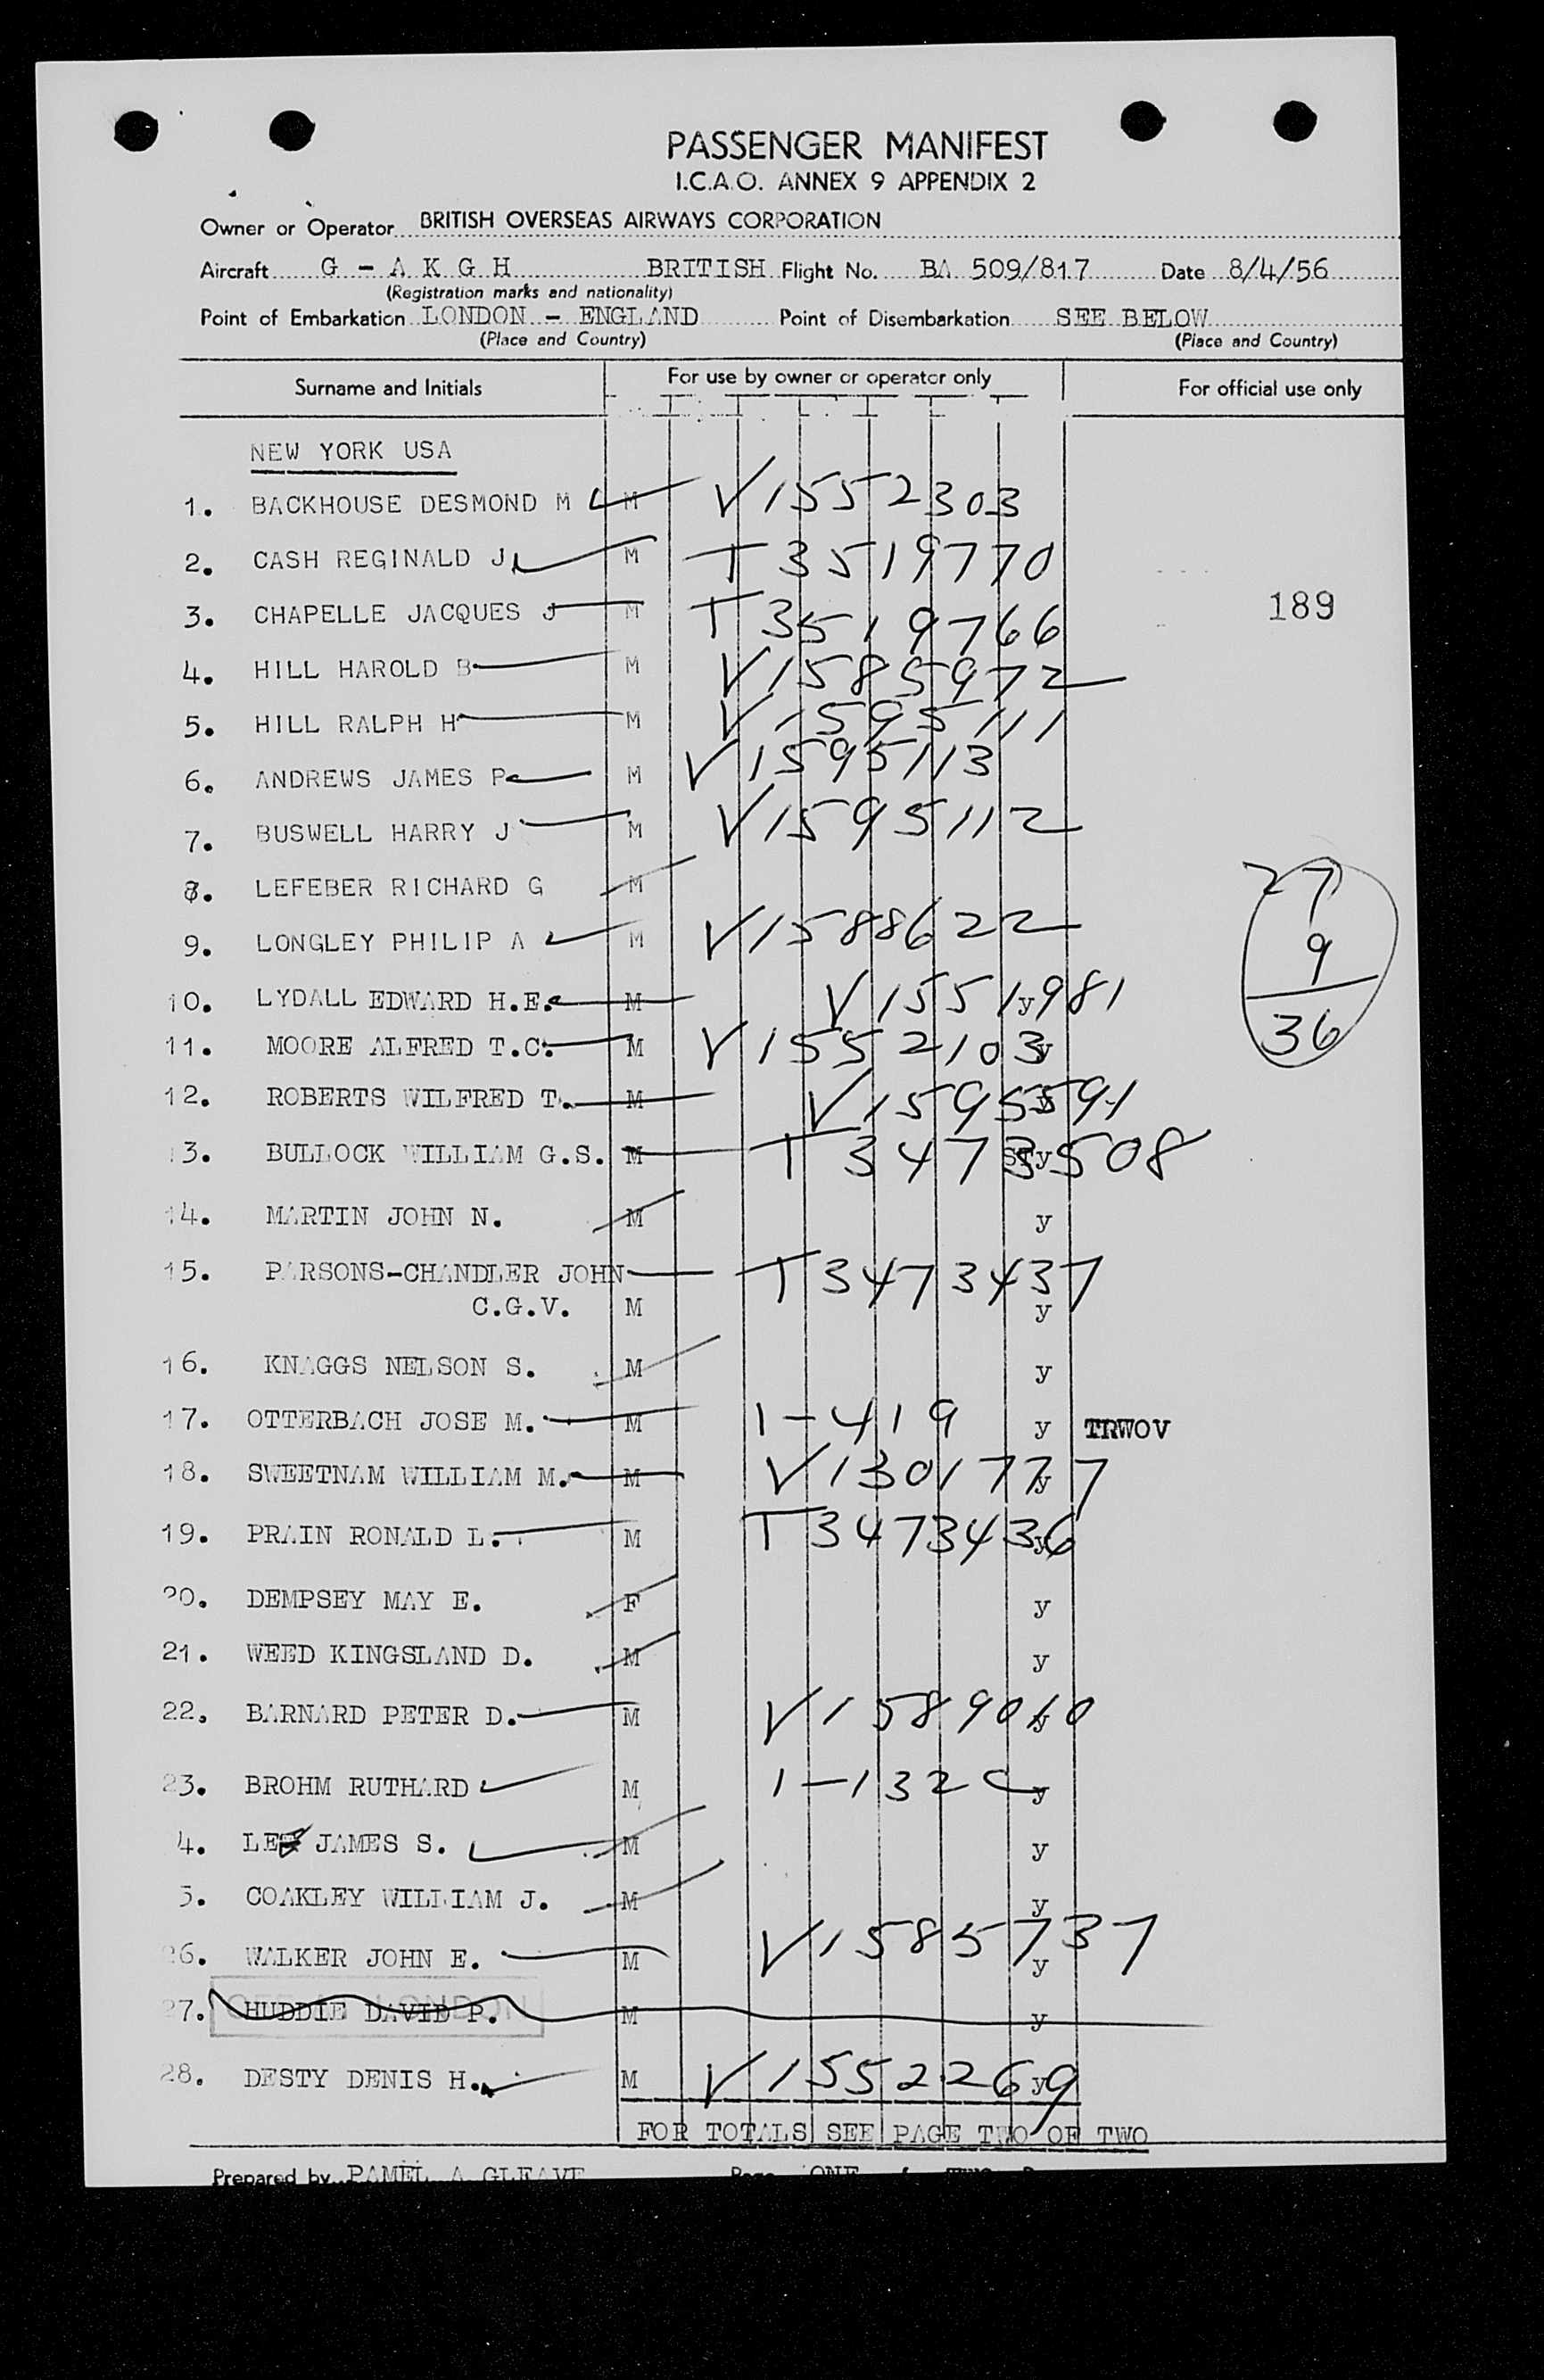 PASSENGER MANIFEST
I.C.A.O. ANNEX 9 APPENDIX 2
Owner or Operator BRITISH OVERSEAS AIRWAYS CORPORATION
Aircraft G - A K G H BRITISH Flight No. BA 509/817 Date 8/4/56
(Registration marks and nationality)
Point of Embarkation LONDON - ENGLAND Point of Disembarkation SEE BELOW
(Place and Country) (Place and Country)
Surname and Initials For use by owner or operator only For official use only
NEW YORK USA
1. BACKHOUSE DESMOND M M V1552303
2. CASH REGINALD J M T3519770
3. CHAPELLE JACQUES J M T3519766 189
4. HILL HAROLD B M V1585972
5. HILL RALPH H M V1595111
6. ANDREWS JAMES P M V1595113
7. BUSWELL HARRY J M V1595112
8. LEFEBER RICHARD G M 27
9. LONGLEY PHILIP A M V1588622 9
10. LYDALL EDWARD H.E. M V1551981 y 36
11. MOORE ALFRED T.C. M V1552103 y
12. ROBERTS WILFRED T. M V1595591
13. BULLOCK WILLIAM G.S. M T3473508 y
14. MARTIN JOHN N. M y
15. PARSONS-CHANDLER JOHN T3473437
C.G.V. M y
16. KNAGGS NELSON S. M y
17. OTTERBACH JOSE M. M 1-419 y TRWOV
18. SWEETNAM WILLIAM M. M V1301777 y
19. PRAIN RONALD L. M T3473436 y
20. DEMPSEY MAY E. F y
21. WEED KINGSLAND D. M y
22. BARNARD PETER D. M V1589010 y
23. BROHM RUTHARD M 1-132 y
4. JAMES S. M y
5. COAKLEY WILLIAM J. M y
26. WALKER JOHN E. M V1585737 y
27. HUDDIE DAVID P. M y
28. DESTY DENIS H. M V1552269 y
FOR TOTALS SEE PAGE TWO OF TWO
Prepared by PAMEL A GLEAVE Page ONE